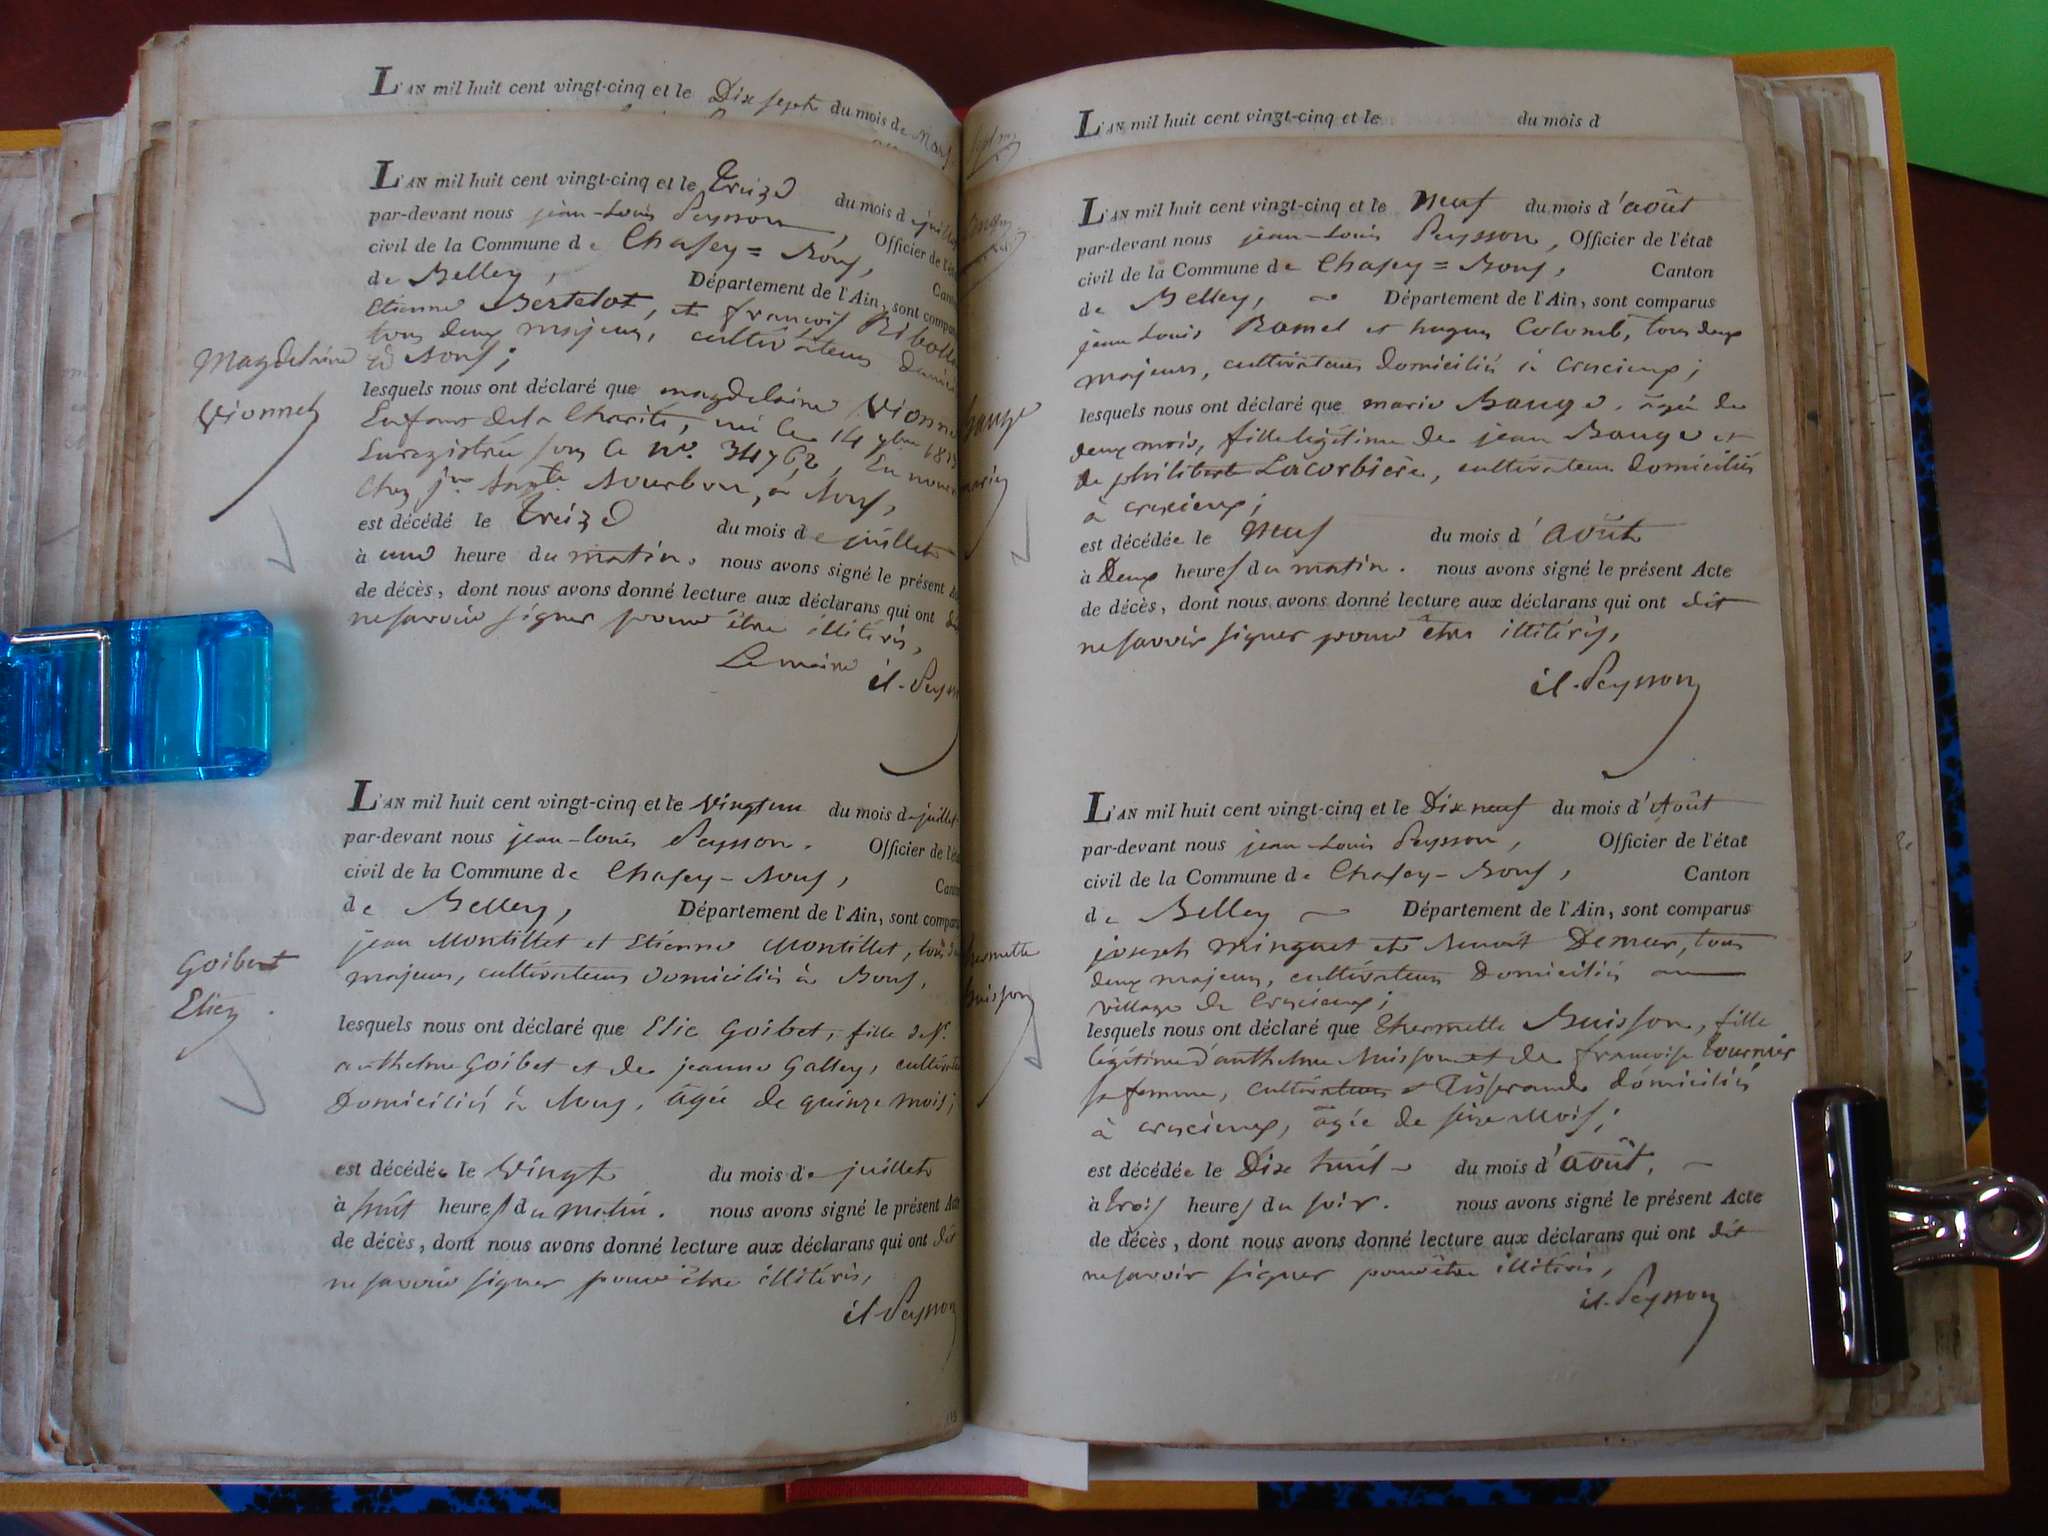 L'AN mil huit cent vingt-cinq et le Dix sept du mois de Mars
L'AN mil huit cent vingt-cinq et le treize du mois de juillet
par-devant nous jean-Louis Peysson, Officier de l'état
civil de la Commune de Chasey=Bons,
de Belley, Département de l'Ain, sont comparus
Etienne Bertelot, et francois
tous deux majeurs, cultivateurs
à Bons;
Magdelaine
Vionnet
lesquels nous ont déclaré que magdelaine Vionnet
Enfant de la Charité, née le 14 9bre
Enregistrée sous le no. 34762, En nourrice
Chez Bourbon, à Bons,
est décédé le treize du mois de juillet
à une heure du matin. nous avons signé le présent
de décès, dont nous avons donné lecture aux déclarans qui ont dit
ne savoir signer pour être illitérés,
Le maire
il. Peysson
L'AN mil huit cent vingt-cinq et le Vingt un du mois de juillet
par-devant nous jean-Louis Peysson. Officier de l'état
civil de la Commune de Chasey-Bons, Canton
de Belley, Département de l'Ain, sont comparus
jean Montillet et Etienne Montillet, tous
majeurs, cultivateurs domiciliés à Bons,
Goibet
Eliez
lesquels nous ont déclaré que Elie Goibet, fille de
anthelme Goibet et de jeanne Galley, cultivateurs
Domiciliés à Bons, âgée de quinze mois;
est décédée le Vingt du mois de juillet
à huit heures du matin. nous avons signé le présent Acte
de décès, dont nous avons donné lecture aux déclarans qui ont dit
ne savoir signer pour être illitérés,
il. Peysson
L'AN mil huit cent vingt-cinq et le du mois d
L'AN mil huit cent vingt-cinq et le neuf du mois d'août
par-devant nous jean-Louis Peysson, Officier de l'état
civil de la Commune de Chasey=Bons, Canton
de Belley, Département de l'Ain, sont comparus
jean Louis Ramel et hugues Colomb, tous deux
majeurs, cultivateurs domiciliés à crescieux;
lesquels nous ont déclaré que marie Bauge, âgée de
deux mois, fille légitime de jean Bauge et
de philiberte Lacorbière, cultivateurs domiciliés
à crescieux;
est décédée le neuf du mois d'août
à Deux heures du matin. nous avons signé le présent Acte
de décès, dont nous avons donné lecture aux déclarans qui ont dit
ne savoir signer pour être illitérés,
il. Peysson
L'AN mil huit cent vingt-cinq et le Dix neuf du mois d'Août
par-devant nous jean-Louis Peysson, Officier de l'état
civil de la Commune de Chasey-Bons, Canton
de Belley Département de l'Ain, sont comparus
joseph minguet et Benoit Demur, tous
deux majeurs, cultivateurs Domiciliés au
village de Crescieux;
lesquels nous ont déclaré que thermette Buisson, fille
légitime d'anthelme Buisson et de francoise tournier
sa femme, cultivateurs et Tisserands domiciliés
à crescieux, âgée de seize Mois;
est décédée le Dix huit du mois d'août.
à trois heures du soir. nous avons signé le présent Acte
de décès, dont nous avons donné lecture aux déclarans qui ont dit
ne savoir signer pour être illitérés,
il. Peysson